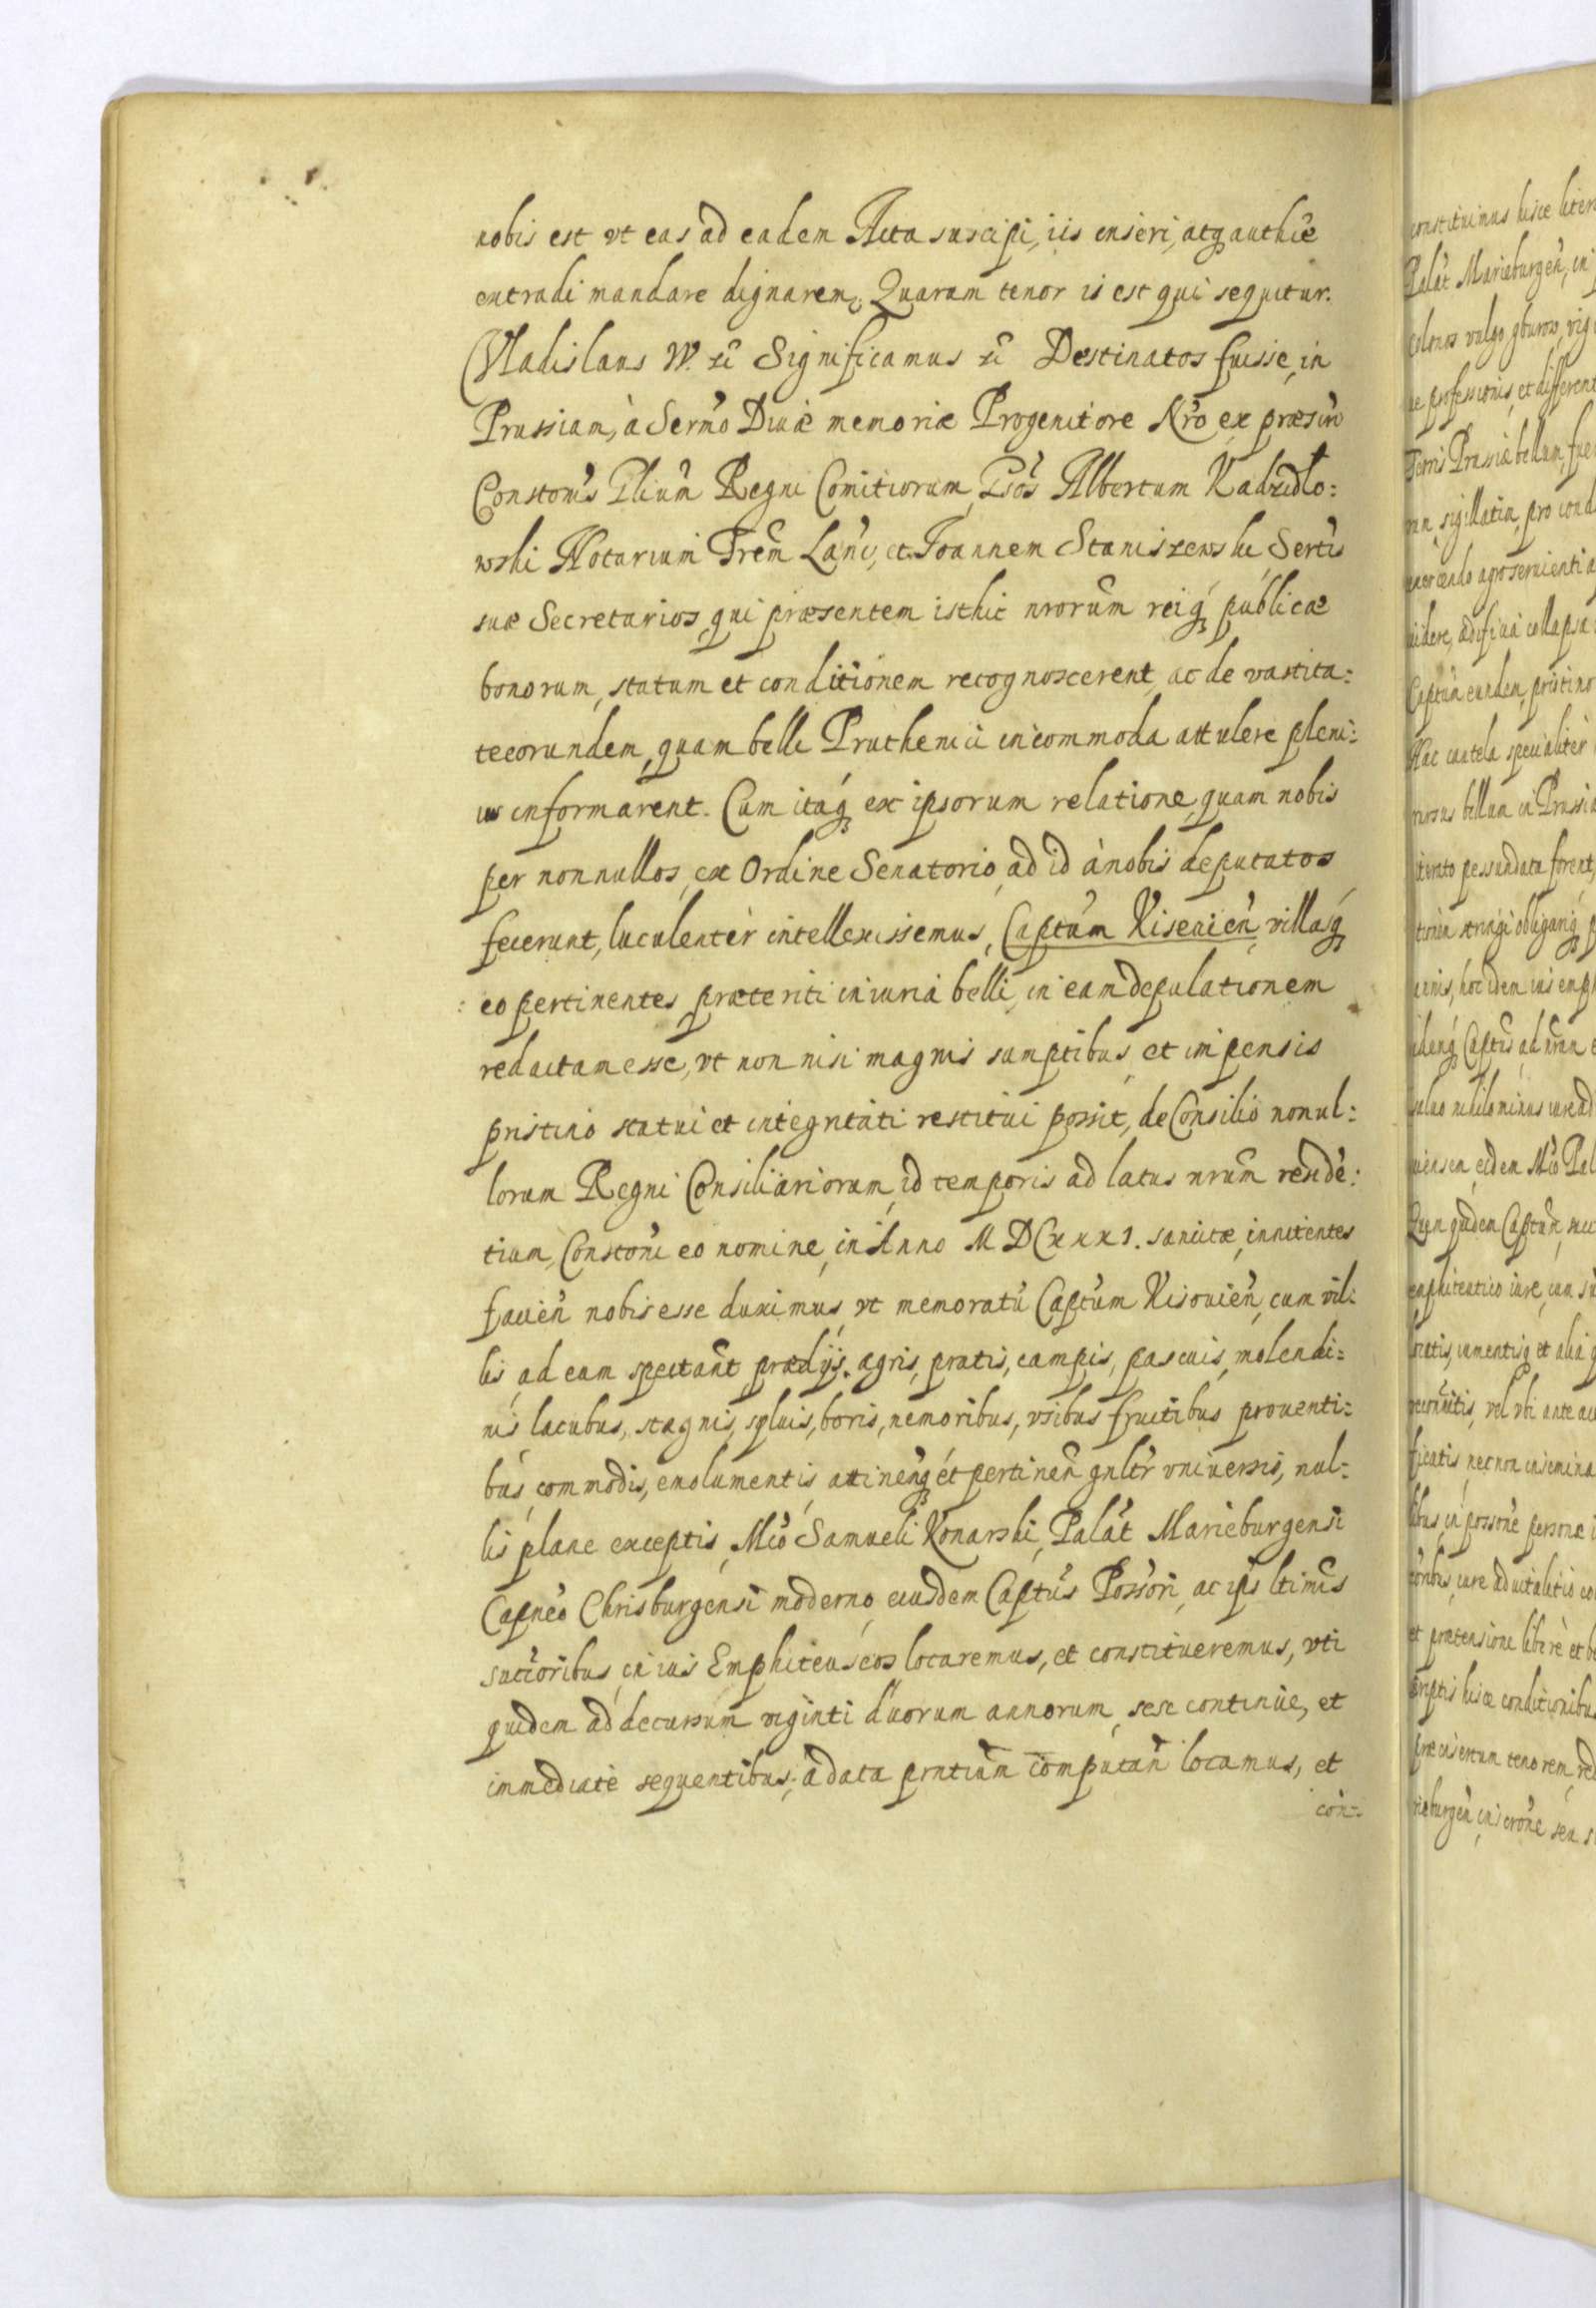 nobis est vt eas ad eadem Acta suscipi, iis inseri, atq authiē
extradi mandare dignarem. Quarum tenor is est qui sequitur.
Vladislaus W. etc Significamus etc Destinatos fuisse, in
Prussiam, à Sermo Divæ memoriæ Progenitore Nro ex præsūi
Constonis Plium Regni Comitiorum, Gsos Albertum Kadzidlo:
wski Notarium Trem Lanc, et Joannem Staniszewski Sertis
suæ Secretarios, qui præsentem isthic nrorum reiq publicæ
bonorum, statum et conditionem recognoscerent, ac de vastita:
te eorundem, quam belli Pruthenici incommoda attulere pleni:
us informarent. Cum itaq ex ipsorum relatione, quam nobis
per nonnullos, ex Ordine Senatorio, ad id à nobis deputatos
fecerunt, luculentèr intellexissemus, Captum Kisevien, villasq
eo pertinentes, præteriti iniuriâ belli, in eam depulationem
redactam esse, vt non nisi magnis sumptibus, et impensis
pristino statui et integritati restitui possit, de Consilio nonul:
lorum Regni Consiliariorum, id temporis ad latus nrum residē:
tium, Constoni eo nomine, in Anno MDCxxx1. sancitæ, innitentes
facien nobis esse duximus, vt memoratū Captum Kisovien, cum vil:
lis ad eam spectant prædijs, agris, pratis, campis, pascuis, molendi:
nis lacubus, stagnis, spluis, boris, nemoribus, vsibus fructibus proventi:
bus, commodis, emolumentis, attinenq et pertinen gnltr vniversis, nul:
lis plane exceptis, Mco Samueli Konarski, Palat Marieburgensi
Capneo Chrisburgensi moderno, eiusdem Captus Possori, ac ips ltimis
succoribus, in ius Emphiteuseos locaremus, et constitueremus, vti
quidem ad decursum viginti duorum annorum, sese continue, et
immediatè sequentibus, a data prntium computan locamus, et
con:
constituimus hisce liter
Palat Marieburgen, in
colonos vulgo gburow, vig
Terris Prussiæ bellum, fue
exercendo agro servienti
Captum eundem, pristino
Hac cautela specialitèr
rursus bellum in Prussia
iterato pessundata forent,
salvo nihilominus iure ad
eidem Mco Pal
Quem quidem Captum,
emphiteutico iure, cum
vel vbi ante
necnon
iure advitalitio
et prætensione liberè et
hisce conditionibus
tenorem